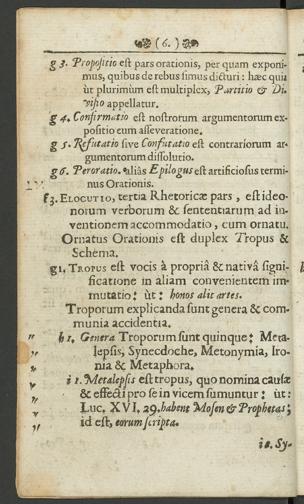 (6.)
g 3. Propositio est pars orationis, per quam exponi-
mus, quibus de rebus simus dicturi: hæc quia
ùt plurimùm est multiplex, Partitio & Di-
visio appellatur.
g 4. Confirmatio est nostrorum argumentorum ex-
positio cum asseveratione.
g 5. Refutatio sive Confutatio est contrariorum ar-
gumentorum dissolutio.
g 6. Peroratio. aliàs Epilogus est artificiosus termi-
nus Orationis.
f 3. ELOCUTIO, tertia Rhetoricæ pars, est ideo-
norum verborum & sententiarum ad in-
ventionem accommodatio, cum ornatu.
Ornatus Orationis est duplex Tropus &
Schema.
g 1. TROPUS est vocis à propriâ & nativâ signi-
ficatione in aliam convenientem im-
mutatio: ùt: honos alit artes.
Troporum explicanda sunt genera & com-
munia accidentia.
h 1. Genera Troporum sunt quinque: Meta-
lepsis, Synecdoche, Metonymia, Iro-
nia & Metaphora.
i 1. Metalepsis est tropus, quo nomina causæ
& effecti pro se in vicem sumuntur: ùt:
Luc. XVI, 29. habent Mosen & Prophetas;
id est, eorum scripta.
i 2. Sy-